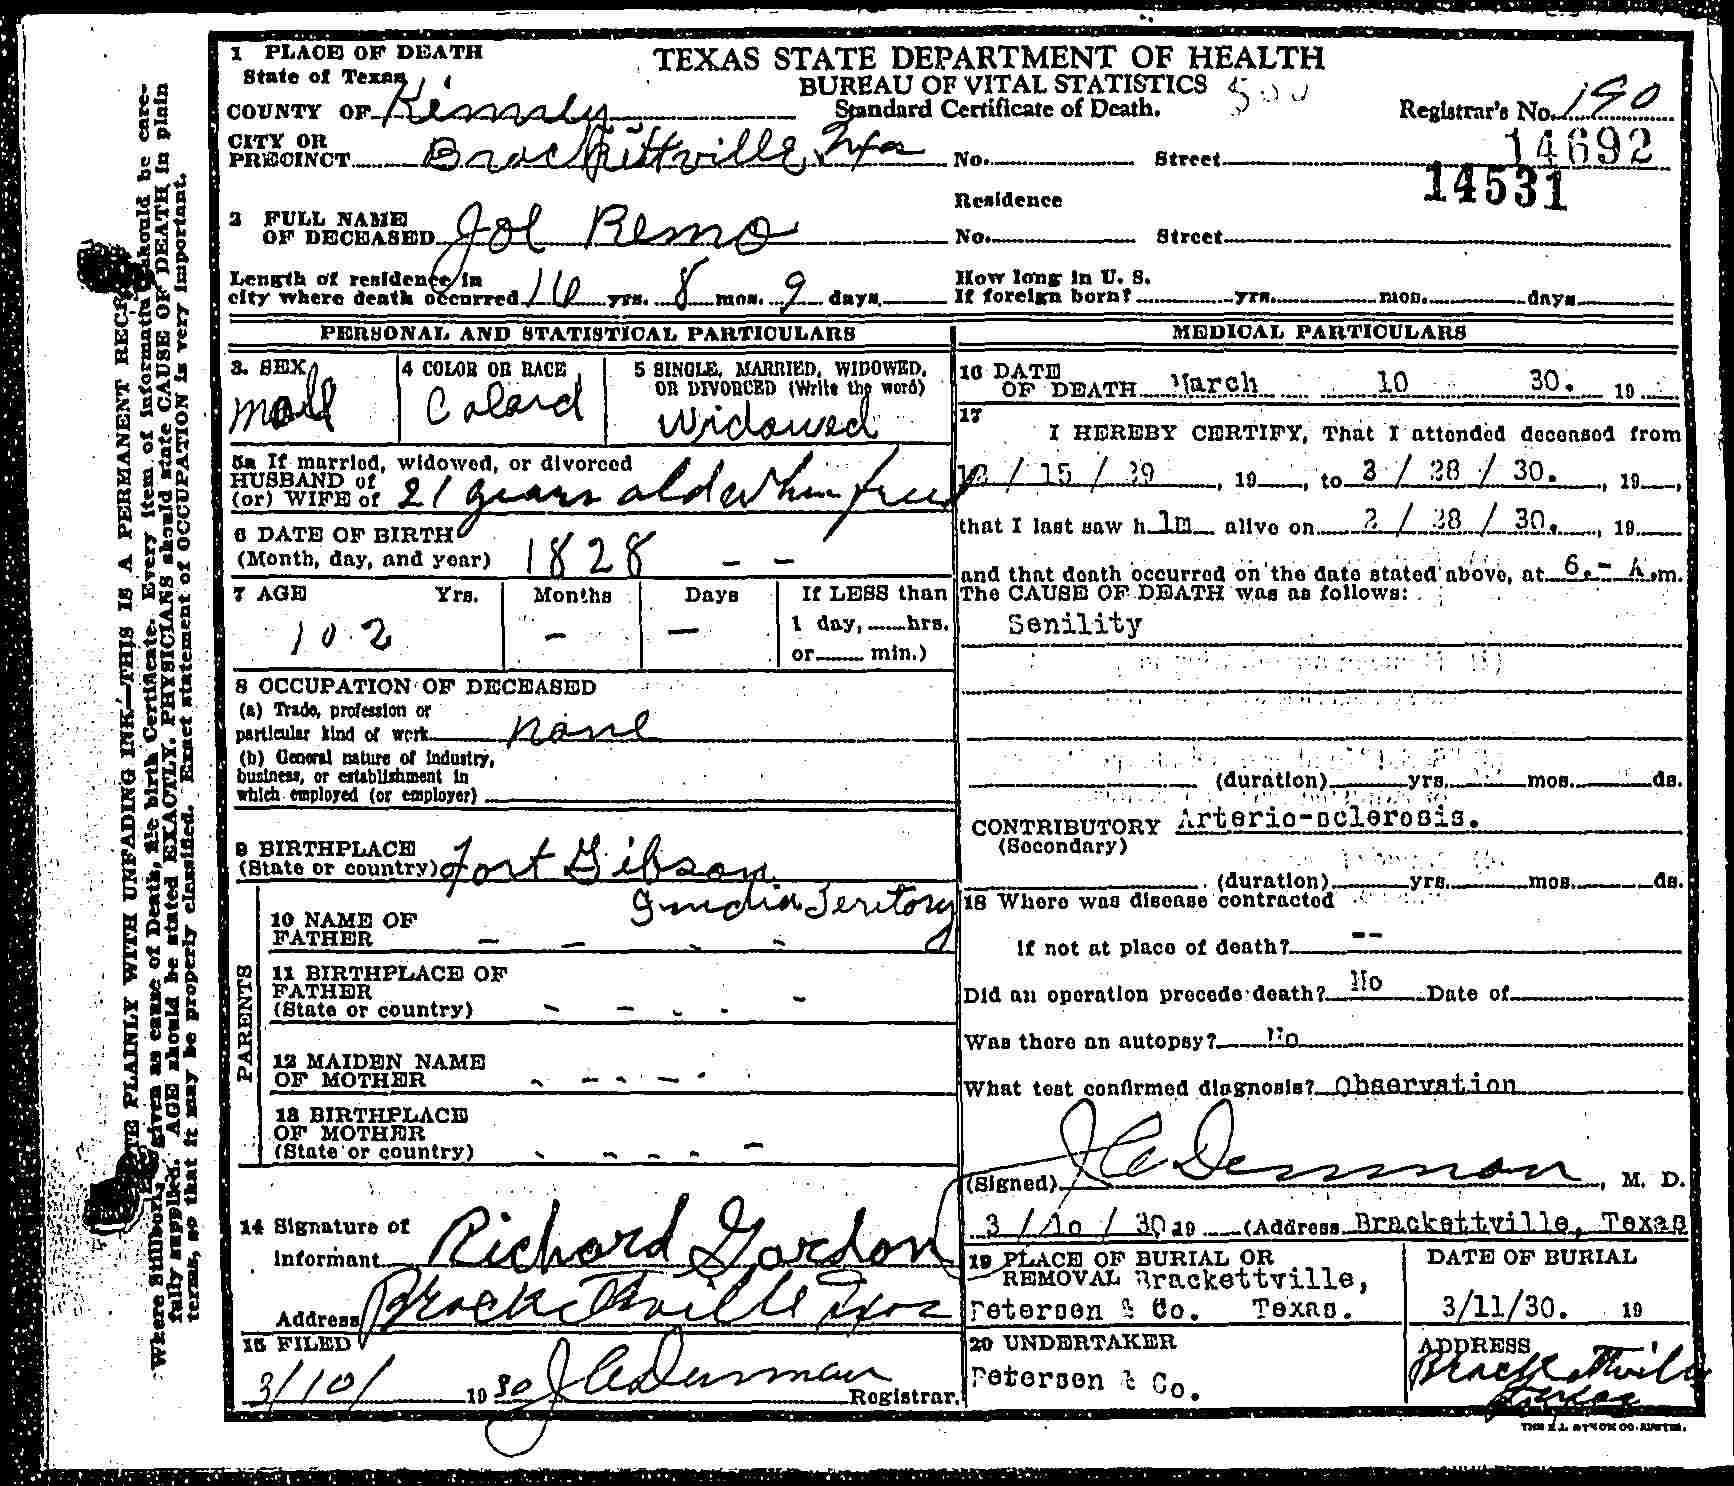 1 PLACE OF DEATH
TEXAS STATE DEPARTMENT OF HEALTH
State of Texas
BUREAU OF VITAL STATISTICS
COUNTY OF Kinney
Standard Certificate of Death.
Registrar's No. 190
CITY OR PRECINCT Brackittville Txas No. Street
14692
14531
Residence
2 FULL NAME OF DECEASED Joe Remo No. Street
Length of residence in city where death occurred 16 yrs. 8 mos. 9 days
How long in U. S. If foreign born? yrs. mos. days
PERSONAL AND STATISTICAL PARTICULARS
3. SEX Male
4 COLOR OR RACE Colard
5 SINGLE, MARRIED, WIDOWED, OR DIVORCED (Write the word) Widowed
5a If married, widowed, or divorced
HUSBAND of
(or) WIFE of 21 years old when free
6 DATE OF BIRTH
(Month, day, and year) 1828 - -
7 AGE Yrs. Months Days If LESS than
102 - - 1 day, hrs.
or min.)
8 OCCUPATION OF DECEASED
(a) Trade, profession or
particular kind of work none
(b) General nature of industry,
business, or establishment in
which employed (or employer)
9 BIRTHPLACE
(State or country) Fort Gibson
Indian Teritory
PARENTS
10 NAME OF
FATHER - - - -
11 BIRTHPLACE OF
FATHER
(State or country) - - - - -
12 MAIDEN NAME
OF MOTHER - - - - -
13 BIRTHPLACE
OF MOTHER
(State or country) - - - - -
14 Signature of
Informant Richard Gordon
Address Brackettville Txas
15 FILED
3/10/ 1930 J C Denman Registrar.
MEDICAL PARTICULARS
16 DATE
OF DEATH March 10 30. 19
17
I HEREBY CERTIFY, That I attended deceased from
15 / 29, 19, to 28 / 30., 19,
that I last saw h im alive on 28 / 30., 19
and that death occurred on the date stated above, at 6.- A.m.
The CAUSE OF DEATH was as follows:
Senility
(duration) yrs. mos. ds.
CONTRIBUTORY Arterio-sclerosis.
(Secondary)
(duration) yrs. mos. ds.
18 Where was disease contracted
if not at place of death? --
Did an operation precede death? No Date of
Was there an autopsy? No
What test confirmed diagnosis? Observation
(Signed) J C Denman, M. D.
3 / 10 / 30 19 (Address Brackettville, Texas
19 PLACE OF BURIAL OR
REMOVAL Brackettville,
Petersen & Co. Texas.
DATE OF BURIAL
3/11/30. 19
20 UNDERTAKER
Petersen & Co.
ADDRESS
Brackettville
Texas
WRITE PLAINLY WITH UNFADING INK—THIS IS A PERMANENT RECORD
Where Stillborn, given as cause of Death, file birth Certificate. Every item of information should be care-
fully supplied. AGE should be stated EXACTLY. PHYSICIANS should state CAUSE OF DEATH in plain
terms, so that it may be properly classified. Exact statement of OCCUPATION is very important.